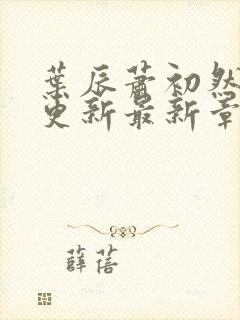 葉辰蕭初然
更新最新章
薛蓓